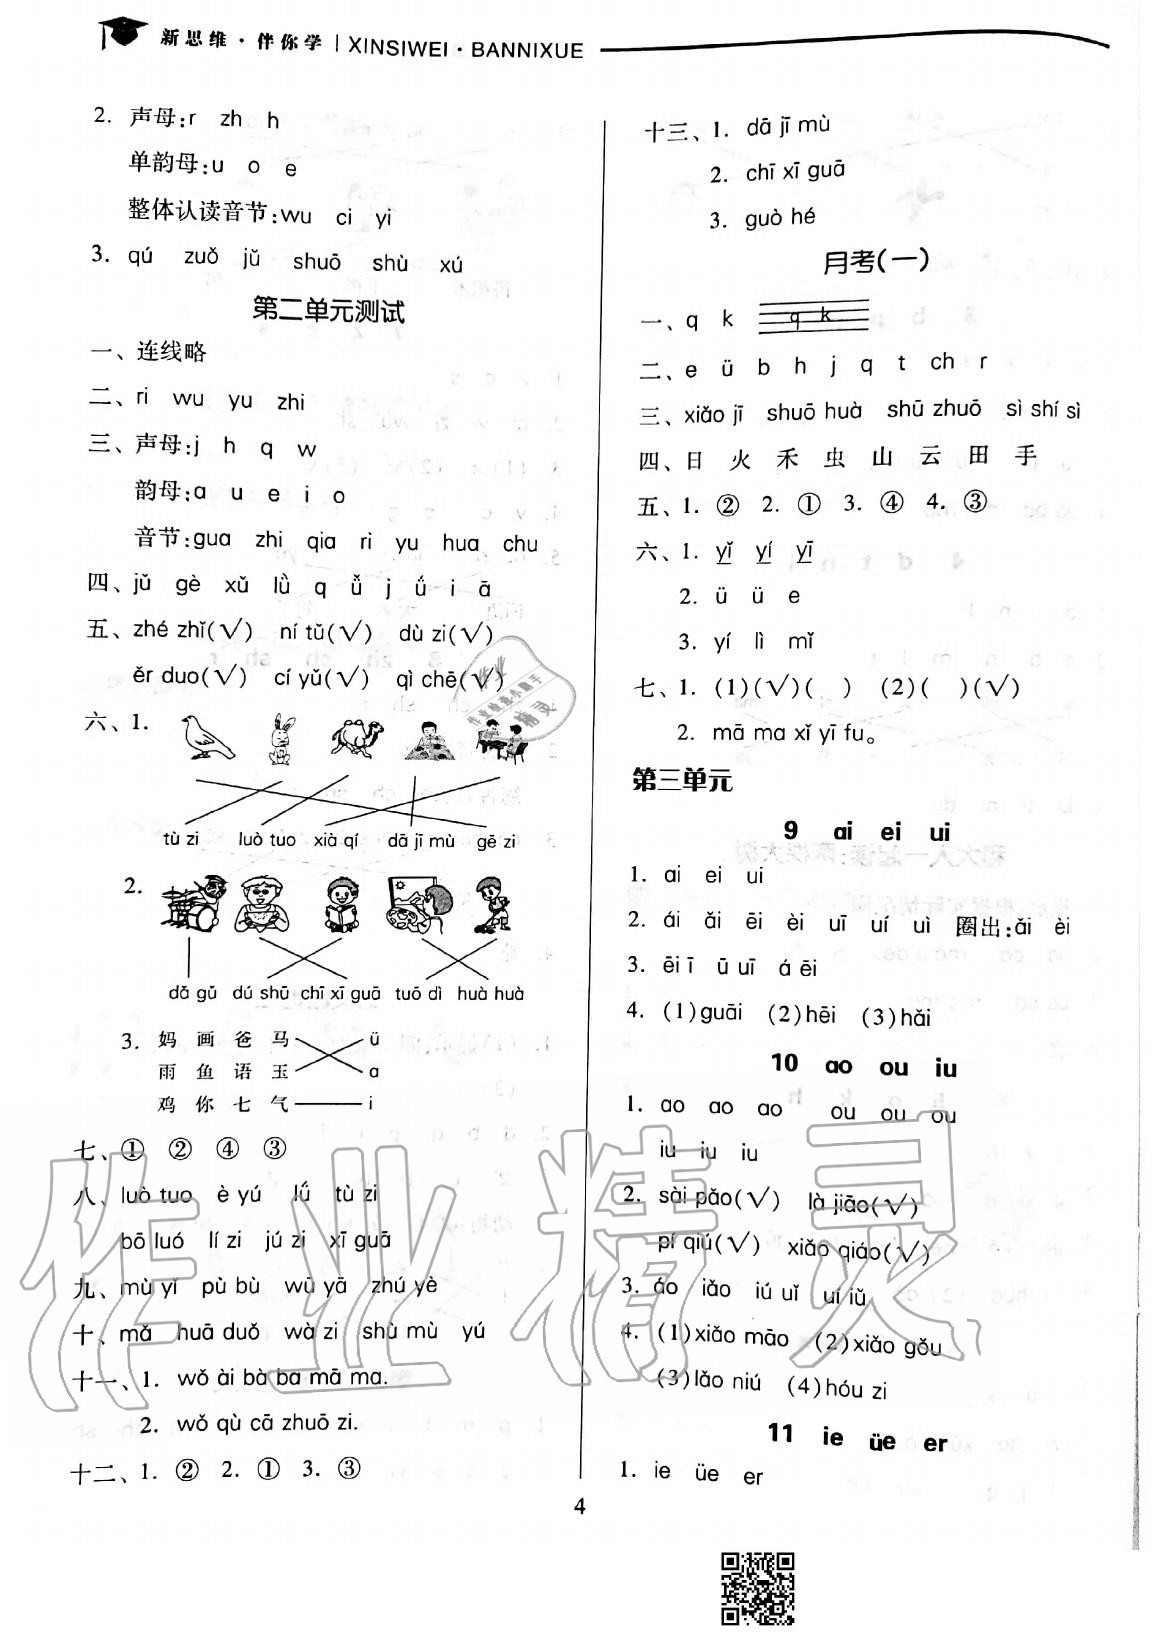 新思维·伴你学 | XINSIWEI·BANNIXUE
2. 声母:r zh h
单韵母:u o e
整体认读音节:wu ci yi
3. qú zuǒ jǔ shuō shù xú
第二单元测试
一、连线略
二、ri wu yu zhi
三、声母:j h q w
韵母:a u e i o
音节:gua zhi qia ri yu hua chu
四、jǔ gè xǔ lǜ q ǚ j ǘ i ā
五、zhé zhǐ(√) ní tǔ(√) dù zi(√)
ěr duo(√) cí yǔ(√) qì chē(√)
六、1.
tù zi luò tuo xià qí dā jī mù gē zi
2.
dǎ gǔ dú shū chī xī guā tuō dì huà huà
3. 妈 画 爸 马 ü
雨 鱼 语 玉 a
鸡 你 七 气 i
七、① ② ④ ③
八、luò tuo è yú lǘ tù zi
bō luó lí zi jú zi xī guā
九、mù yǐ pù bù wū yā zhú yè
十、mǎ huā duǒ wà zi shù mù yú
十一、1. wǒ ài bà ba mā ma.
2. wǒ qù cā zhuō zi.
十二、1. ② 2. ① 3. ③
十三、1. dā jī mù
2. chī xī guā
3. guò hé
月考(一)
一、q k q k
二、e ü b h j q t ch r
三、xiǎo jī shuō huà shū zhuō sì shí sì
四、日 火 禾 虫 山 云 田 手
五、1. ② 2. ① 3. ④ 4. ③
六、1. yǐ yí yī
2. ü ü e
3. yí lì mǐ
七、1. (1)(√)( ) (2)( )(√)
2. mā ma xǐ yī fu。
第三单元
9 ai ei ui
1. ai ei ui
2. ái ǎi ēi èi uī uí uì 圈出:ǎi èi
3. ēi ī ū uī á ēi
4. (1)guāi (2)hēi (3)hǎi
10 ao ou iu
1. ao ao ao ou ou ou
iu iu iu
2. sài pǎo(√) là jiāo(√)
pí qiú(√) xiǎo qiáo(√)
3. áo iǎo iú uǐ uí iǔ
4. (1)xiǎo māo (2)xiǎo gǒu
(3)lǎo niú (4)hóu zi
11 ie üe er
1. ie üe er
4
作业精灵